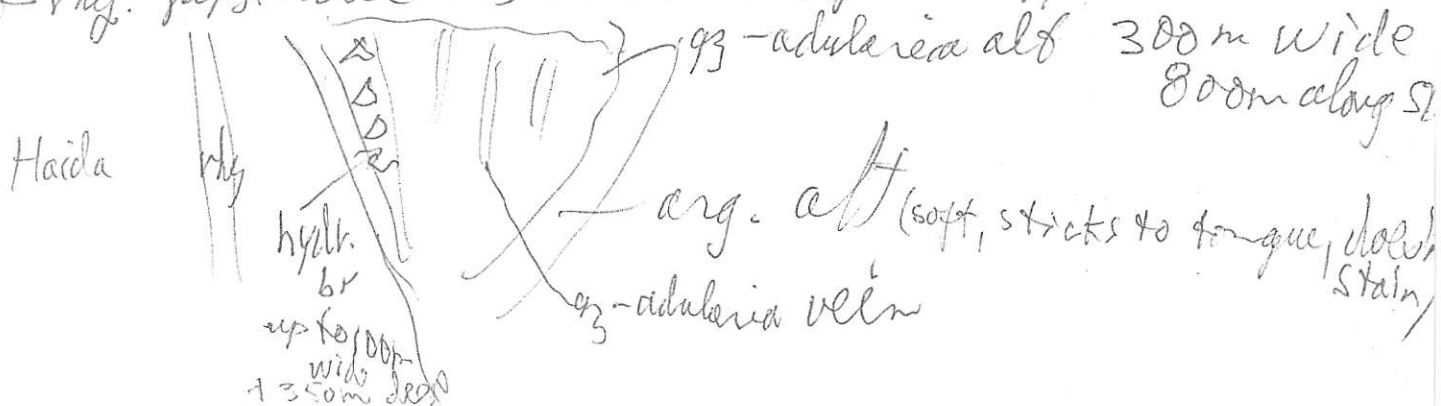 rhy.
qz-adularia alt 300m wide
800m along
Haida
rhy
hydr.
br
up to 100m
wide
+ 350m deep
arg. alt (soft, sticks to tongue,
stain)
qz-adularia vein